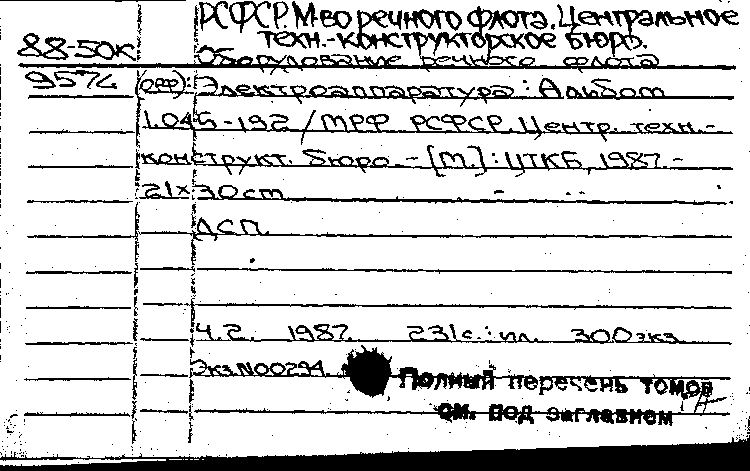 РСФСР. М-во речного флота. Центральное
техн.-конструкторское бюро.
88-50к
Оборудование речного флота
957с (офр): Электроаппаратура: Альбом
1.045-192 / МРФ РСФСР. Центр. техн.-
конструкт. бюро. - [М.]: ЦТКБ, 1987. -
21×30 cm
ДСП.
Ч.2. 1987. 231с.: ил. 300 экз.
Экз.N00294
Полный перечень томов
см. под заглавием